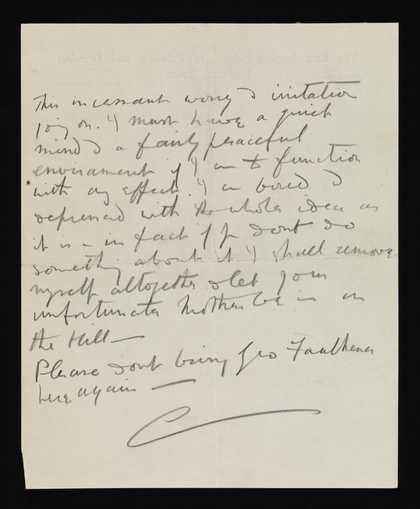 This incessant worry & irritation
going on. I must have a quiet
mind & a fairly peaceful
environment if I am to function
with any effect. I am bored &
depressed with the whole idea as
it is – in fact if you dont do
something about it I shall remove
myself altogether & let your
unfortunate Mother be in on
the Hill –
Please dont bring Geo Faulkener
here again –
C